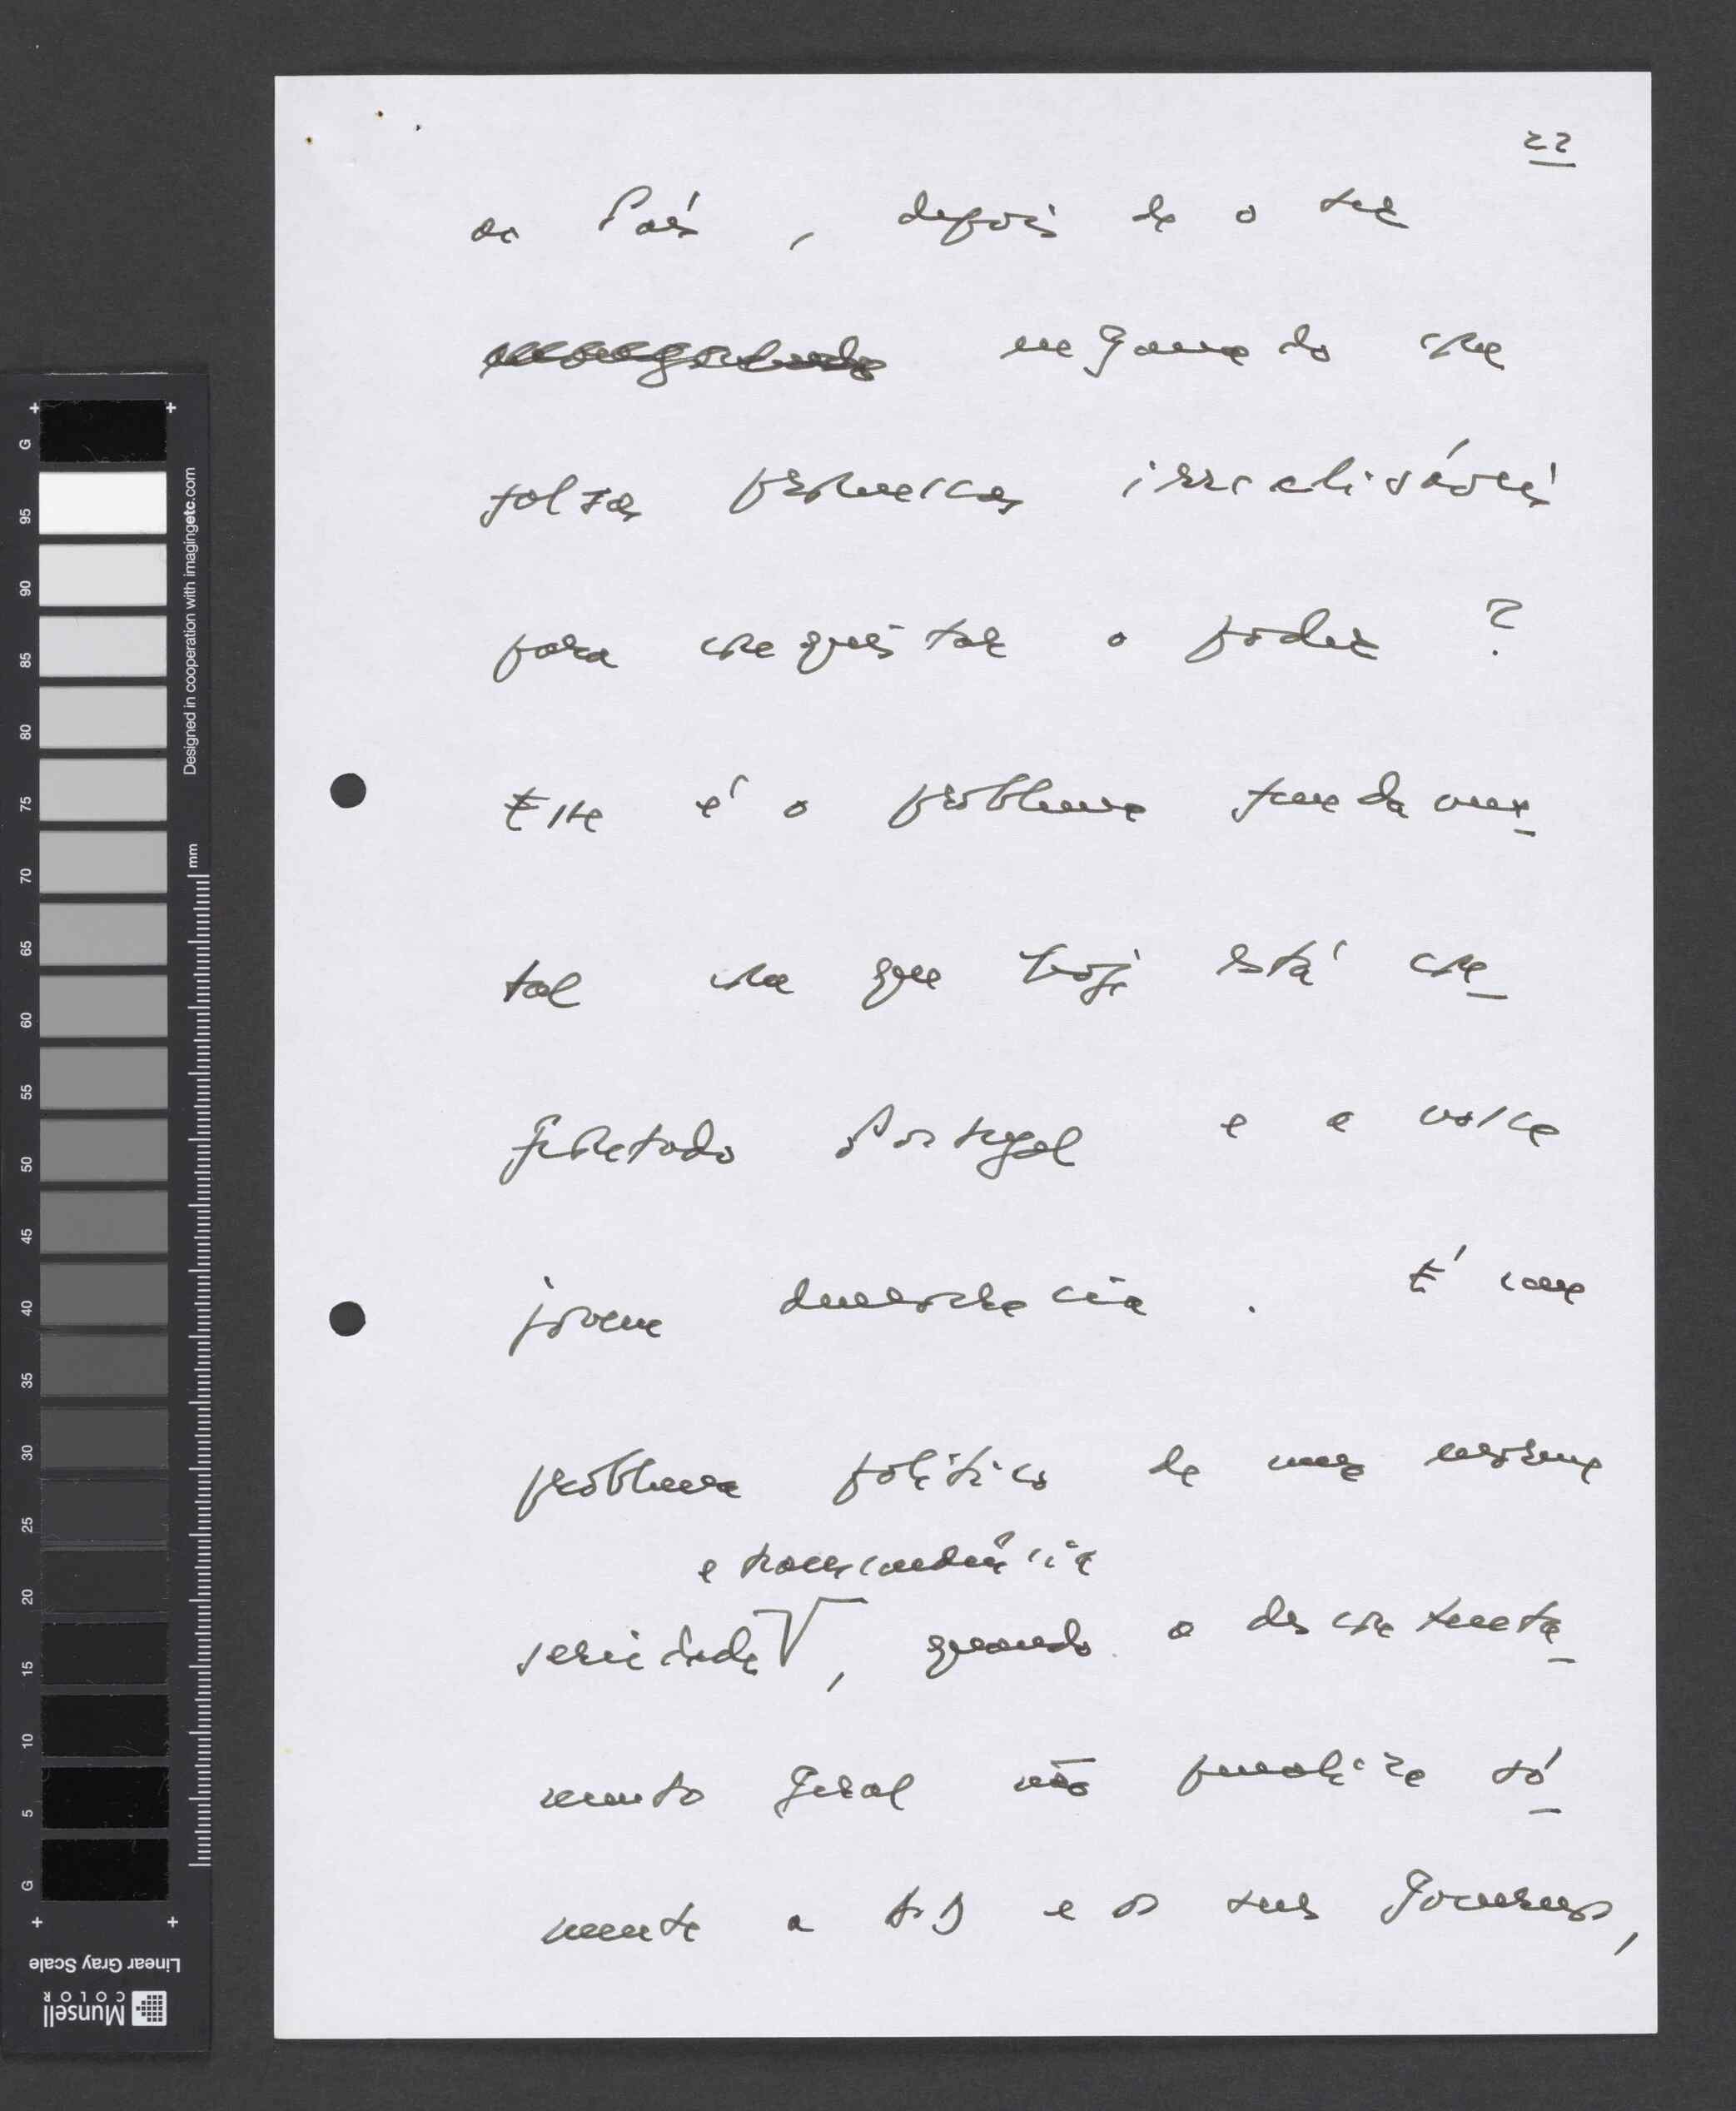 22
ao País, depois de o ter
enganado com
falsas promessas irrealizáveis
para conquistar o poder?
Este é o problema fundamen-
tal com que hoje está con-
frontado Portugal e a nossa
jovem democracia. É um
problema político de uma enorme
e transcendência
seriedade, quando o descontenta-
mento geral não penaliza só-
mente a AD e os seus Governos,
G
95
90
85
80
75
70
65
60
55
50
45
40
35
30
25
20
15
10
5
G
Designed in cooperation with imagingetc.com
mm
Linear Gray Scale
Munsell
COLOR